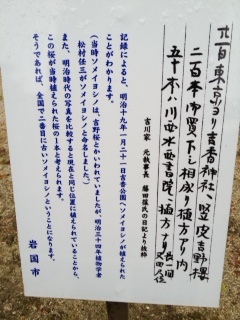 廿一日東京ヨリ吉香神社ヘ竪皮吉野櫻
二百本御買下シ相成リ植方アリ内
五十本ハ川西水西書院ニ植方アリ長一間又四人位
吉川家 元執事長 藤田葆氏の日記より抜粋
記録によると、明治十九年一月二十一日吉香公園へソメイヨシノが植えられた
ことがわかります。
(当時ソメイヨシノは、吉野桜とかいわれていましたが、明治三十四年植物学者
松村任三がソメイヨシノと命名しました。)
また、明治時代の写真を比較すると現在と同じ位置に植えられていることから、
この桜が当時植えられた桜の1本と考えられます。
そうであれば、全国で二番目に古いソメイヨシノということになります。
岩国市